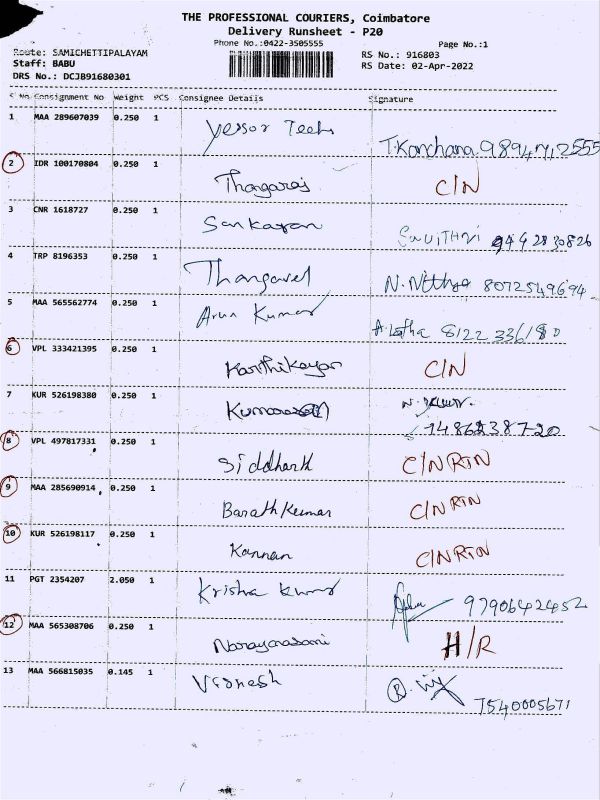 THE PROFESSIONAL COURIERS, Coimbatore
Delivery Runsheet - P20
Phone No.:0422-3505555
Page No.:1
Route: SAMICHETTIPALAYAM
Staff: BABU
DRS No.: DCJB91680301
RS No.: 916803
RS Date: 02-Apr-2022
S No. Consignment No Weight PCS Consignee Details Signature
1 MAA 289607039 0.250 1 Yessor Tech T.Kanchana 9894712555
2 IDR 100170804 0.250 1 Thangaraj C/N
3 CNR 1618727 0.250 1 Sankaran SAVITHRI 9442830826
4 TRP 8196353 0.250 1 Thangavel N. Nithya 8072549694
5 MAA 565562774 0.250 1 Arun Kumar A. Latha 8122 336180
6 VPL 333421395 0.250 1 Karthikeyan C/N
7 KUR 526198380 0.250 1 N.
8 VPL 497817331 0.250 1 Siddharth C/N RTN
9 MAA 285690914 0.250 1 Barath Kumar C/N RTN
10 KUR 526198117 0.250 1 Kannan C/N RTN
11 PGT 2354207 2.050 1 Krishna Kumar 9790642452
12 MAA 565308706 0.250 1 Narayanasami H/R
13 MAA 566815035 0.145 1 Vignesh 7540005671